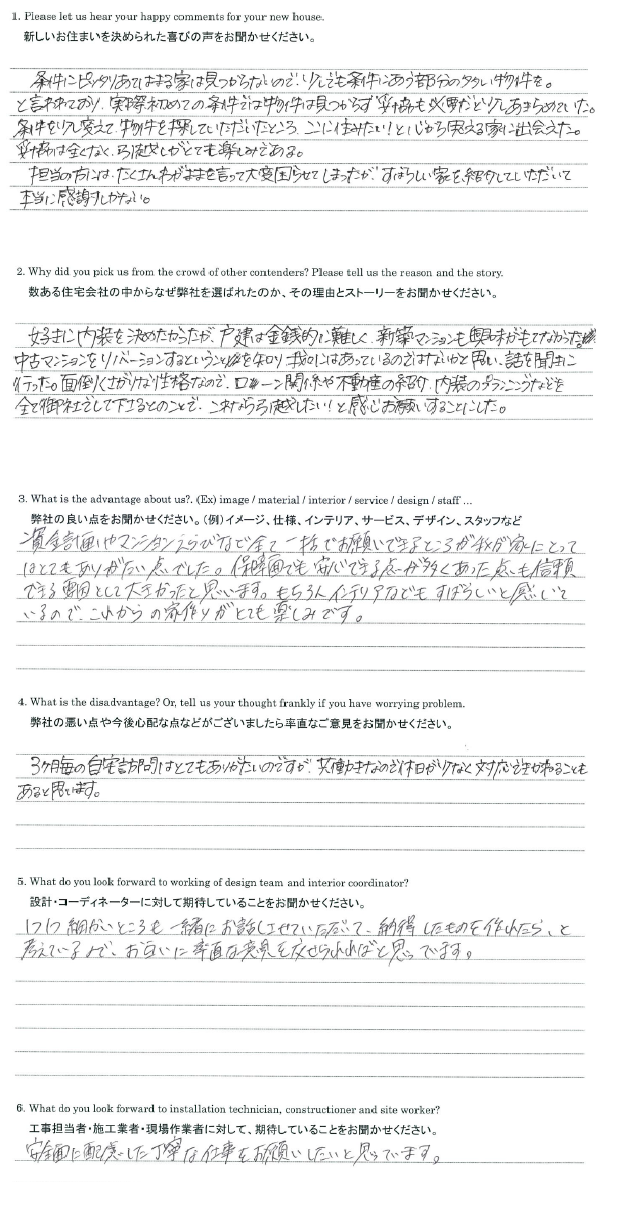 1. Please let us hear your happy comments for your new house.
新しいお住まいを決められた喜びの声をお聞かせください。
条件にピッタリあてはまる家は見つからないので、少しでも条件にあう部分の多い物件を。
と言われており、実際初めての条件では物件は見つからず妥協も必要だと少しあきらめていた。
条件を少し変えて物件を探していただいたところ、ここに住みたい!と心から思える家に出会えた。
妥協は全くなく、引越しがとても楽しみである。
担当の方には、たくさんわがままを言って大変困らせてしまったが、すばらしい家を紹介していただいて
本当に感謝しかない。
2. Why did you pick us from the crowd of other contenders? Please tell us the reason and the story.
数ある住宅会社の中からなぜ弊社を選ばれたのか、その理由とストーリーをお聞かせください。
好きに内装を決めたかったが、戸建は金銭的に難しく、新築マンションも興味がもてなかった。
中古マンションをリノベーションするということを知り、我にはあっているのではないかと思い、話を聞きに
行った。面倒くさがりな性格なので、ローン関係や不動産の紹介、内装のプランニングなどを
全て御社でして下さるとのことで、これなら引越したい!と感じお願いすることにした。
3. What is the advantage about us?. (Ex) image / material / interior / service / design / staff ...
弊社の良い点をお聞かせください。(例)イメージ、仕様、インテリア、サービス、デザイン、スタッフなど
資金計画やマンションえらびなど全て一括でお願いできるところが我が家にとって
はとてもありがたい点でした。保障面でも安心できる点が多くあった点も信頼
できる要因として大きかったと思います。もちろんインテリアなどもすばらしいと感じて
いるので、これからの家作りがとても楽しみです。
4. What is the disadvantage? Or, tell us your thought frankly if you have worrying problem.
弊社の悪い点や今後心配な点などがございましたら率直なご意見をお聞かせください。
3ヶ月毎の自宅訪問はとてもありがたいのですが、共働きなので休日が少なく対応できかねることも
あると思います。
5. What do you look forward to working of design team and interior coordinator?
設計・コーディネーターに対して期待していることをお聞かせください。
1つ1つ細かいところも一緒にお話しさせていただいて、納得したものを作れたら、と
考えているので、お互いに率直な意見を交せられればと思っています。
6. What do you look forward to installation technician, constructioner and site worker?
工事担当者・施工業者・現場作業者に対して、期待していることをお聞かせください。
安全面に配慮した丁寧な仕事をお願いしたいと思っています。